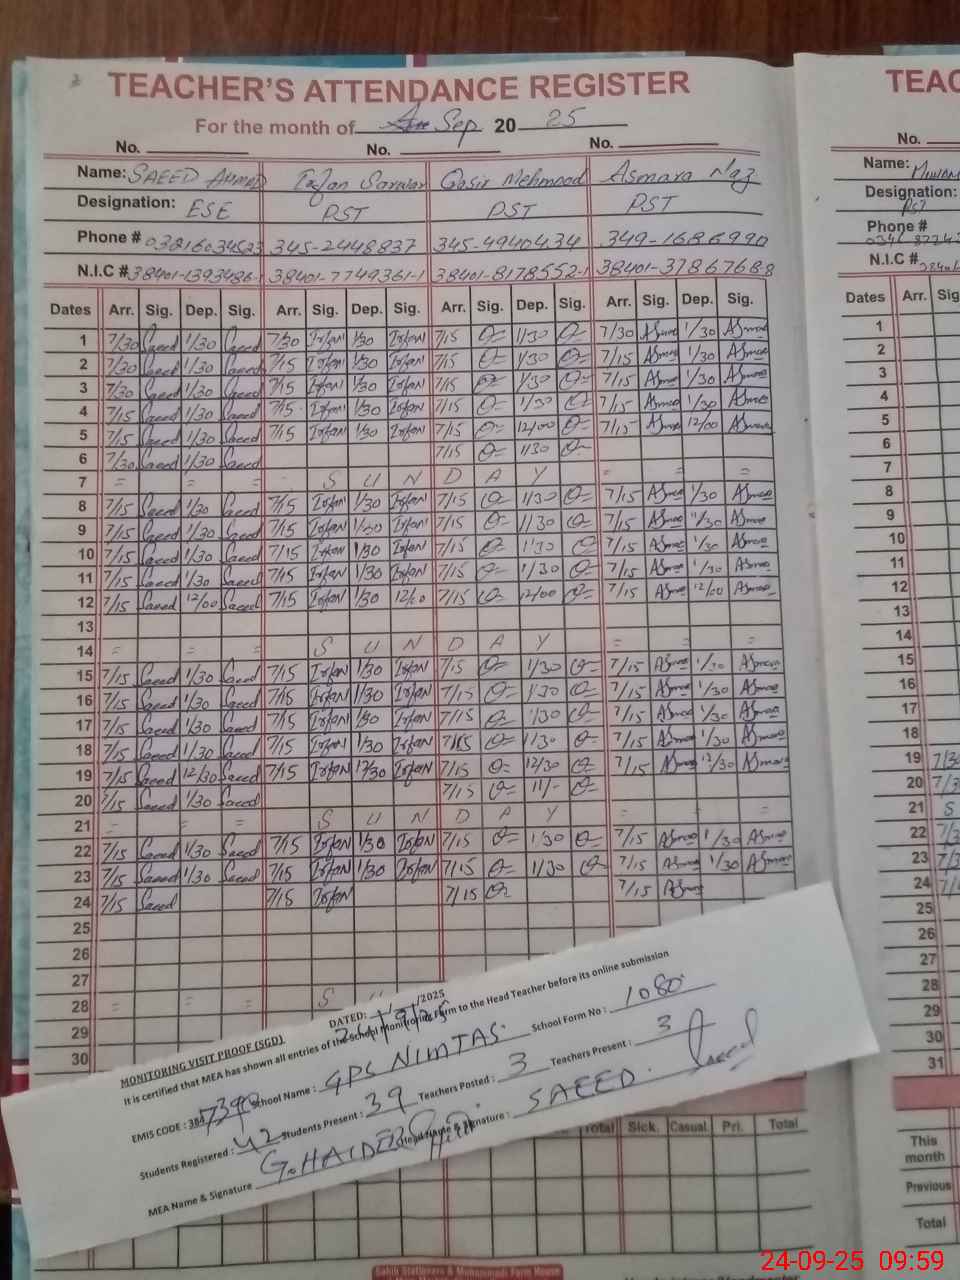 TEACHER'S ATTENDANCE REGISTER
For the month of Sep 20 25
No. No. No.
Name: SAEED AHMAD Irfan Sarwar Qasir Mehmood Asmara Naz
Designation: ESE PST PST PST
Phone # 03216034523 345-2448837 345-4940434 349-1686990
N.I.C # 38401-1393486-1 38401-7749361-1 38401-8178552-1 38401-37867688
Dates Arr. Sig. Dep. Sig. Arr. Sig. Dep. Sig. Arr. Sig. Dep. Sig. Arr. Sig. Dep. Sig.
1 7/30 Saeed 1/30 Saeed 7/30 Irfan 1/30 Irfan 7/15 1/30 7/30 Asma 1/30 Asma
2 7/30 Saeed 1/30 Saeed 7/15 Irfan 1/30 Irfan 7/15 1/30 7/15 Asma 1/30 Asma
3 7/30 Saeed 1/30 Saeed 7/15 Irfan 1/30 Irfan 7/15 1/30 7/15 Asma 1/30 Asma
4 7/15 Saeed 1/30 Saeed 7/15 Irfan 1/30 Irfan 7/15 1/30 7/15 Asma 1/30 Asma
5 7/15 Saeed 1/30 Saeed 7/15 Irfan 1/30 Irfan 7/15 12/00 7/15 Asma 12/00 Asma
6 7/30 Saeed 1/30 Saeed 7/15 1/30
7 = = = S U N D A Y = = =
8 7/15 Saeed 1/30 Saeed 7/15 Irfan 1/30 Irfan 7/15 1/30 7/15 Asma 1/30 Asma
9 7/15 Saeed 1/30 Saeed 7/15 Irfan 1/30 Irfan 7/15 1/30 7/15 Asma 1/30 Asma
10 7/15 Saeed 1/30 Saeed 7/15 Irfan 1/30 Irfan 7/15 1/30 7/15 Asma 1/30 Asma
11 7/15 Saeed 1/30 Saeed 7/15 Irfan 1/30 Irfan 7/15 1/30 7/15 Asma 1/30 Asma
12 7/15 Saeed 12/00 Saeed 7/15 Irfan 1/30 7/15 12/00 7/15 Asma 12/00 Asma
13
14 = = = S U N D A Y = = =
15 7/15 Saeed 1/30 Saeed 7/15 Irfan 1/30 Irfan 7/15 1/30 7/15 Asma 1/30 Asma
16 7/15 Saeed 1/30 Saeed 7/15 Irfan 1/30 Irfan 7/15 1/30 7/15 Asma 1/30 Asma
17 7/15 Saeed 1/30 Saeed 7/15 Irfan 1/30 Irfan 7/15 1/30 7/15 Asma 1/30 Asma
18 7/15 Saeed 1/30 Saeed 7/15 Irfan 1/30 Irfan 7/15 1/30 7/15 Asma 1/30 Asma
19 7/15 Saeed 12/30 Saeed 7/15 Irfan 12/30 Irfan 7/15 12/30 7/15 Asma 12/30 Asma
20 7/15 Saeed 1/30 Saeed 7/15 11/-
21 = = = S U N D A Y = = =
22 7/15 Saeed 1/30 Saeed 7/15 Irfan 1/30 Irfan 7/15 1/30 7/15 Asma 1/30 Asma
23 7/15 Saeed 1/30 Saeed 7/15 Irfan 1/30 Irfan 7/15 1/30 7/15 Asma 1/30 Asma
24 7/15 Saeed 7/15 Irfan 7/15 7/15 Asma
25
26
27
28 = = = S U
29
30
MONITORING VISIT PROOF (SGD) DATED: /2025
It is certified that MEA has shown all entries of the School Monitoring Form to the Head Teacher before its online submission
EMIS CODE : 384 School Name : GPS NIMTAS School Form No : 1080
Students Registered : 42 Students Present : 39 Teachers Posted : 3 Teachers Present : 3
MEA Name & Signature G. HAIDER Head Name & Signature : SAEED. Saeed
Total Sick. Casual. Pri. Total
TEAC
No.
Name:
Designation:
PST
Phone #
N.I.C #
Dates Arr. Sig
1
2
3
4
5
6
7
8
9
10
11
12
13
14
15
16
17
18
19
20
21 S
22
23
24
25
26
27
28
29
30
31
This month
Previous
Total
Sahib Stationers & Muhammadi Form House
24-09-25 09:59